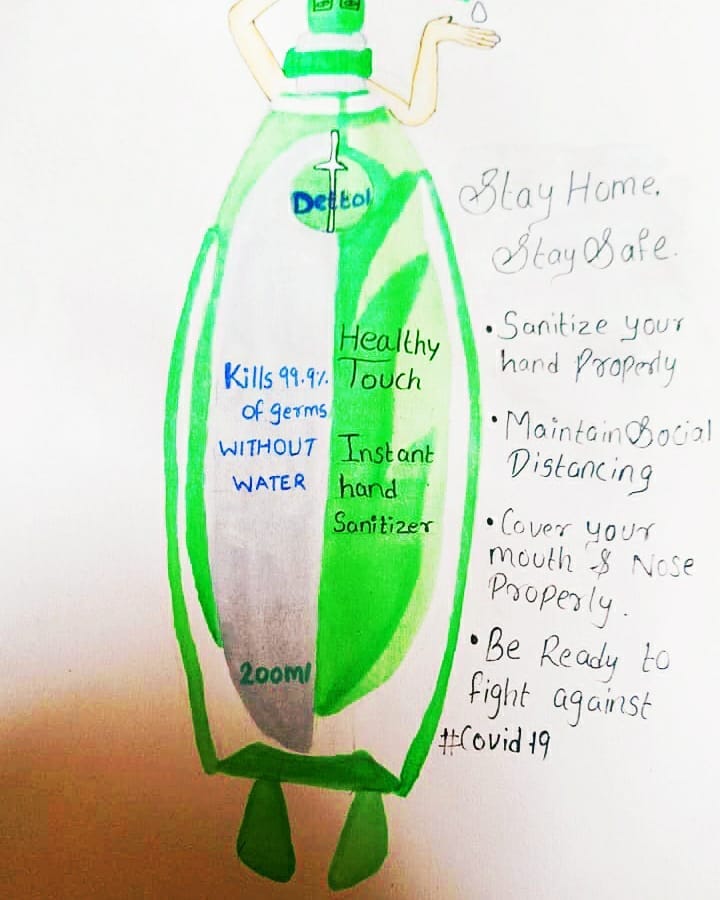 Dettol
Kills 99.9%
of germs
WITHOUT
WATER
Healthy
Touch
Instant
hand
Sanitizer
200ml
Stay Home.
Stay Safe.
• Sanitize your
hand Properly
• Maintain Social
Distancing
• Cover your
mouth & Nose
Properly.
• Be Ready to
fight against
#Covid 19